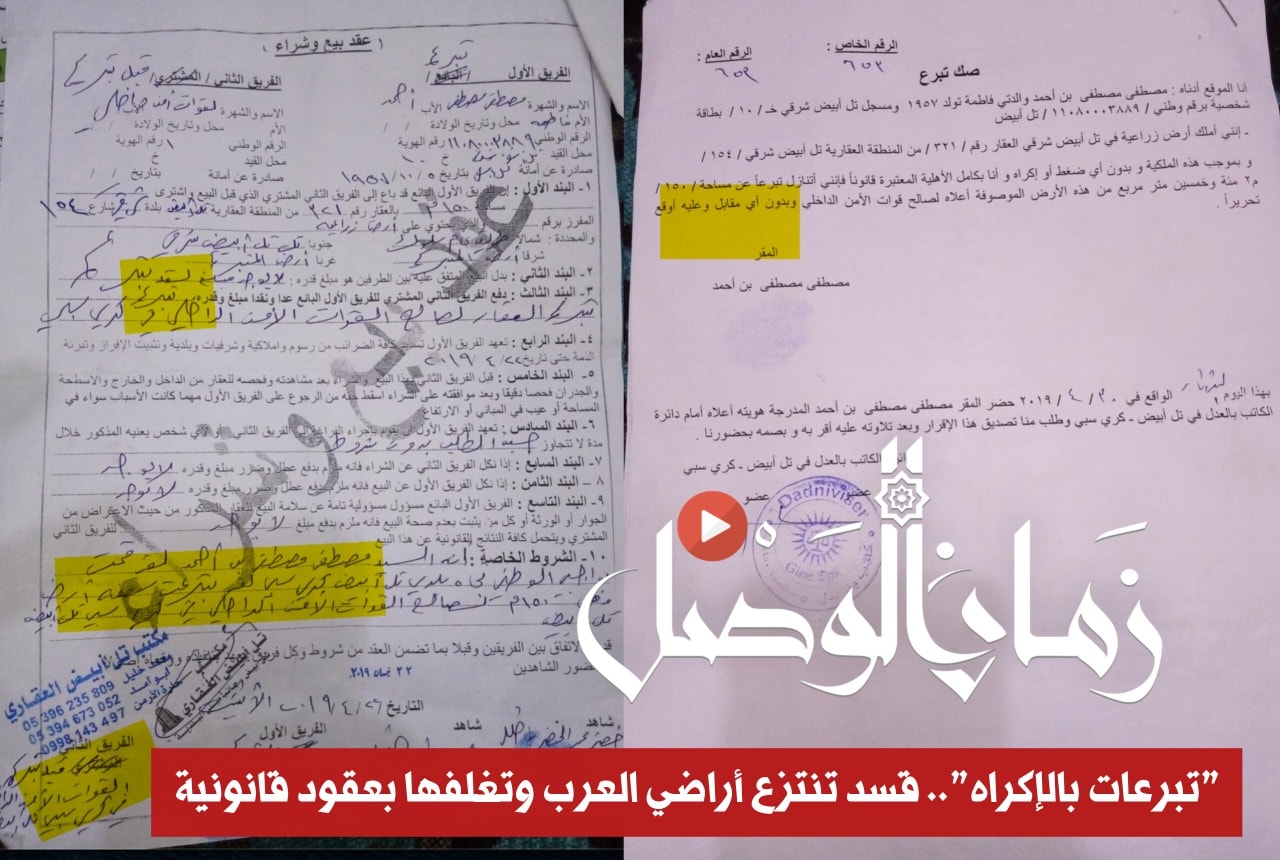 ( عقد بيع وشراء )
الفريق الأول / البائع /
تبرع
الفريق الثاني / المشتري /
قبل تبرع
الاسم والشهرة مصطفى مصطفى الأب أحمد
الاسم والشهرة لقوات أمن داخلي
الأم فاطمة محل وتاريخ الولادة / /
الأم محل وتاريخ الولادة / /
الرقم الوطني ١١٠٨٠٠٠٣٨٨٩ رقم الهوية
الرقم الوطني ١ رقم الهوية
محل القيد خ ١٠
محل القيد خ
صادرة عن أمانة بتاريخ ١٩٥٧/١٠/٥
صادرة عن أمانة بتاريخ / /
١- البند الأول : إن الفريق الأول البائع قد باع إلى الفريق الثاني المشتري الذي قبل البيع واشترى
١٥٠ م٢ بالعقار رقم / ٣٢١ من المنطقة العقارية تل أبيض بلدة شرقي شارع ١٥٤
المفرز برقم والذي يحتوي على أرض زراعية
والمحددة : شمالا جنوبا تل أبيض شرقي
شرقا أرض غربا أرض
٢- البند الثاني : بدل البيع المتفق عليه بين الطرفين هو مبلغ قدره : لا يوجد مبلغ لعقد تبرع
٣- البند الثالث : دفع الفريق الثاني المشتري للفريق الأول البائع عدا ونقدا مبلغ وقدره تبرع
تبرع العقار لصالح القوات الأمن الداخلي في كري سبي
٤- البند الرابع : تعهد الفريق الأول تسديد كافة الضرائب من رسوم واملاكية وشرفيات وبلدية وتثبيت الإفراز وتبرئة
الذمة حتى تاريخ ٢٠١٩/٤/٢٢
٥- البند الخامس : قبل الفريق الثاني بهذا البيع والشراء بعد مشاهدته وفحصه للعقار من الداخل والخارج والاسطحة
والجدران فحصا دقيقا وبعد موافقته على الشراء اسقط حقه من الرجوع على الفريق الأول مهما كانت الأسباب سواء في
المساحة أو عيب في المباني أو الارتفاع
٦- البند السادس : تعهد الفريق الأول أن يقوم بإجراء الفراغة إلى الفريق الثاني أو لأي شخص يعنيه المذكور خلال
مدة لا تتجاوز حسب الطلب بدون شروط
٧- البند السابع : إذا نكل الفريق الثاني عن الشراء فانه ملزم بدفع عطل وضرر مبلغ وقدره لا يوجد
٨- البند الثامن : إذا نكل الفريق الأول عن البيع فانه ملزم بدفع عطل وضرر مبلغ وقدره لا يوجد
٩- البند التاسع : الفريق الأول البائع مسؤول مسؤولية تامة عن سلامة البيع للعقار المذكور من حيث الاعتراض من
الجوار أو الورثة أو كل من يثبت بعدم صحة البيع فانه ملزم بدفع مبلغ لا يوجد للفريق الثاني
المشتري ويتحمل كافة النتائج القانونية عن هذا البيع
١٠- الشروط الخاصة : أنه السيد مصطفى مصطفى بن أحمد لقد قمت
واجبه الوطني تجاه بلدي تل أبيض كري سبي لقد تبرعت أرض
١٥٠م لصالح القوات الأمن الداخلي في كري سبي تل أبيض
تل أبيض
والشاهدين
٢٢ نيسان ٢٠١٩
التاريخ ٢٠١٩/٤/٢٦ الاثنين
شاهد
شاهد
الفريق الأول
الفريق الثاني
عقد بيع وشراء
مكتب تل أبيض العقاري
05 396 235 809
05 394 673 052
0998 143 497
الرقم الخاص :
٦٥٣
الرقم العام :
٦٥٩
صك تبرع
انا الموقع أدناه : مصطفى مصطفى بن أحمد والدتي فاطمة تولد ١٩٥٧ ومسجل تل أبيض شرقي خـ / ١٠ / بطاقة
شخصية برقم وطني / ١١٠٨٠٠٠٣٨٨٩ / تل أبيض
- إنني أملك أرض زراعية في تل أبيض شرقي العقار رقم / ٣٢١ / من المنطقة العقارية تل أبيض شرقي / ١٥٤ /
و بموجب هذه الملكية و بدون أي ضغط أو إكراه و أنا بكامل الأهلية المعتبرة قانوناً فإنني أتنازل تبرعاً عن مساحة / ١٥٠ /
م٢ منة وخمسين متر مربع من هذه الأرض الموصوفة أعلاه لصالح قوات الأمن الداخلي وبدون أي مقابل وعليه أوقع
تحريراً .
المقر
مصطفى مصطفى بن أحمد
بهذا اليوم الواقع في ٣٠ / ٤ / ٢٠١٩ حضر المقر مصطفى مصطفى بن أحمد المدرجة هويته أعلاه أمام دائرة
الكاتب بالعدل في تل أبيض - كري سبي وطلب منا تصديق هذا الإقرار وبعد تلاوته عليه أقر به و بصمه بحضورنا .
الكاتب بالعدل في تل أبيض - كري سبي
عضو
عضو
Dadniviser
Girê Spî
زمان الوصل
"تبرعات بالإكراه".. قسد تنتزع أراضي العرب وتغلفها بعقود قانونية